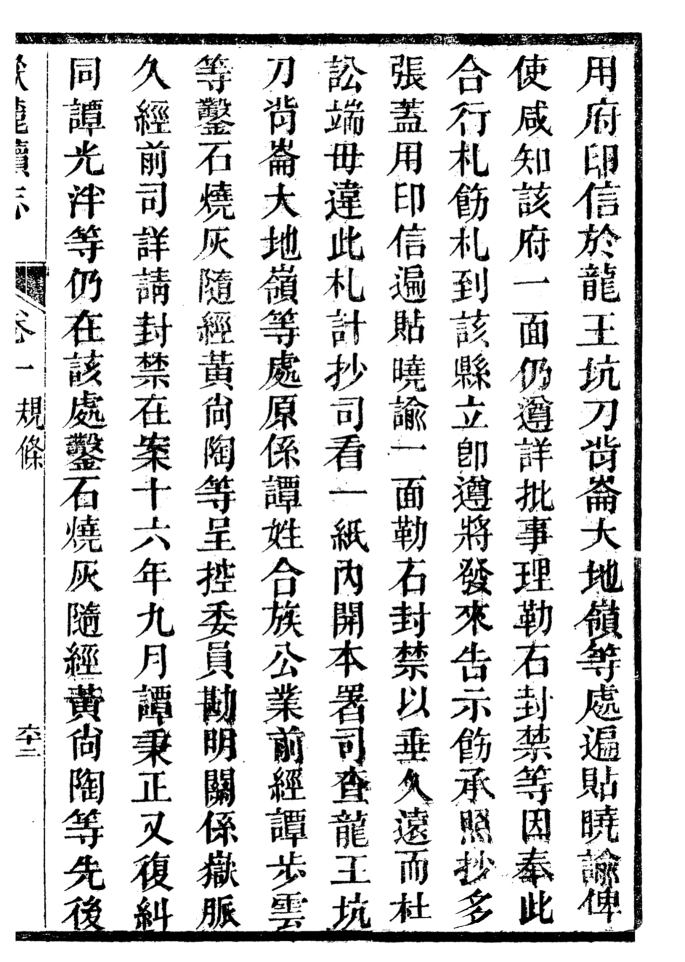 用府印信於龍王坑刀背崙大地嶺等處遍貼曉諭俾
使咸知該府一面仍遵詳批事理勒石封禁等因奉此
合行札飭札到該縣立卽遵將發來告示飭承照抄多
張蓋用印信遍貼曉諭一面勒石封禁以垂久遠而杜
訟端毋違此札計抄司看一紙內開本署司查龍王坑
刀背崙大地嶺等處原係譚姓合族公業前經譚步雲
等鑿石燒灰隨經黃尙陶等呈控委員勘明關係嶽脈
久經前司詳請封禁在案十六年九月譚秉正又復糾
同譚光泮等仍在該處鑿石燒灰隨經黃尙陶等先後
嶽麓續志
卷一 規條